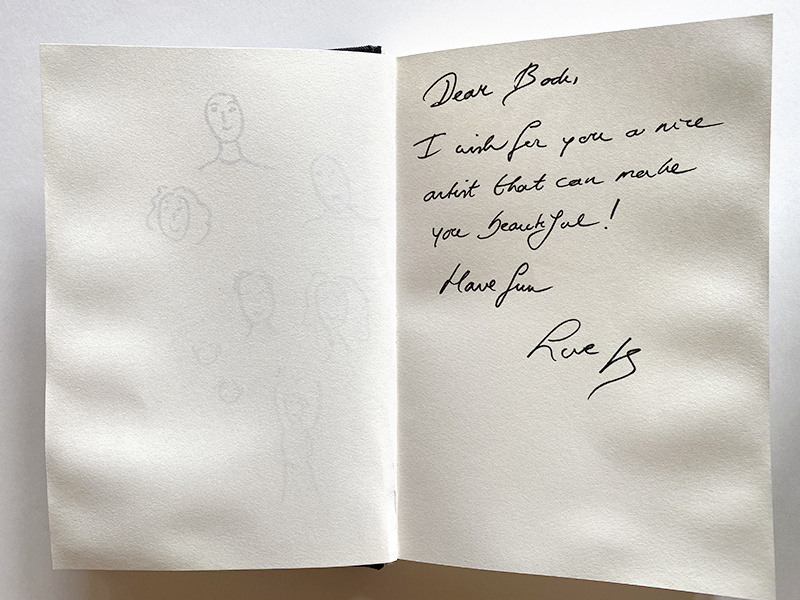 Dear Book,
I wish for you a nice
artist that can make
you beautiful!
Have fun
Love